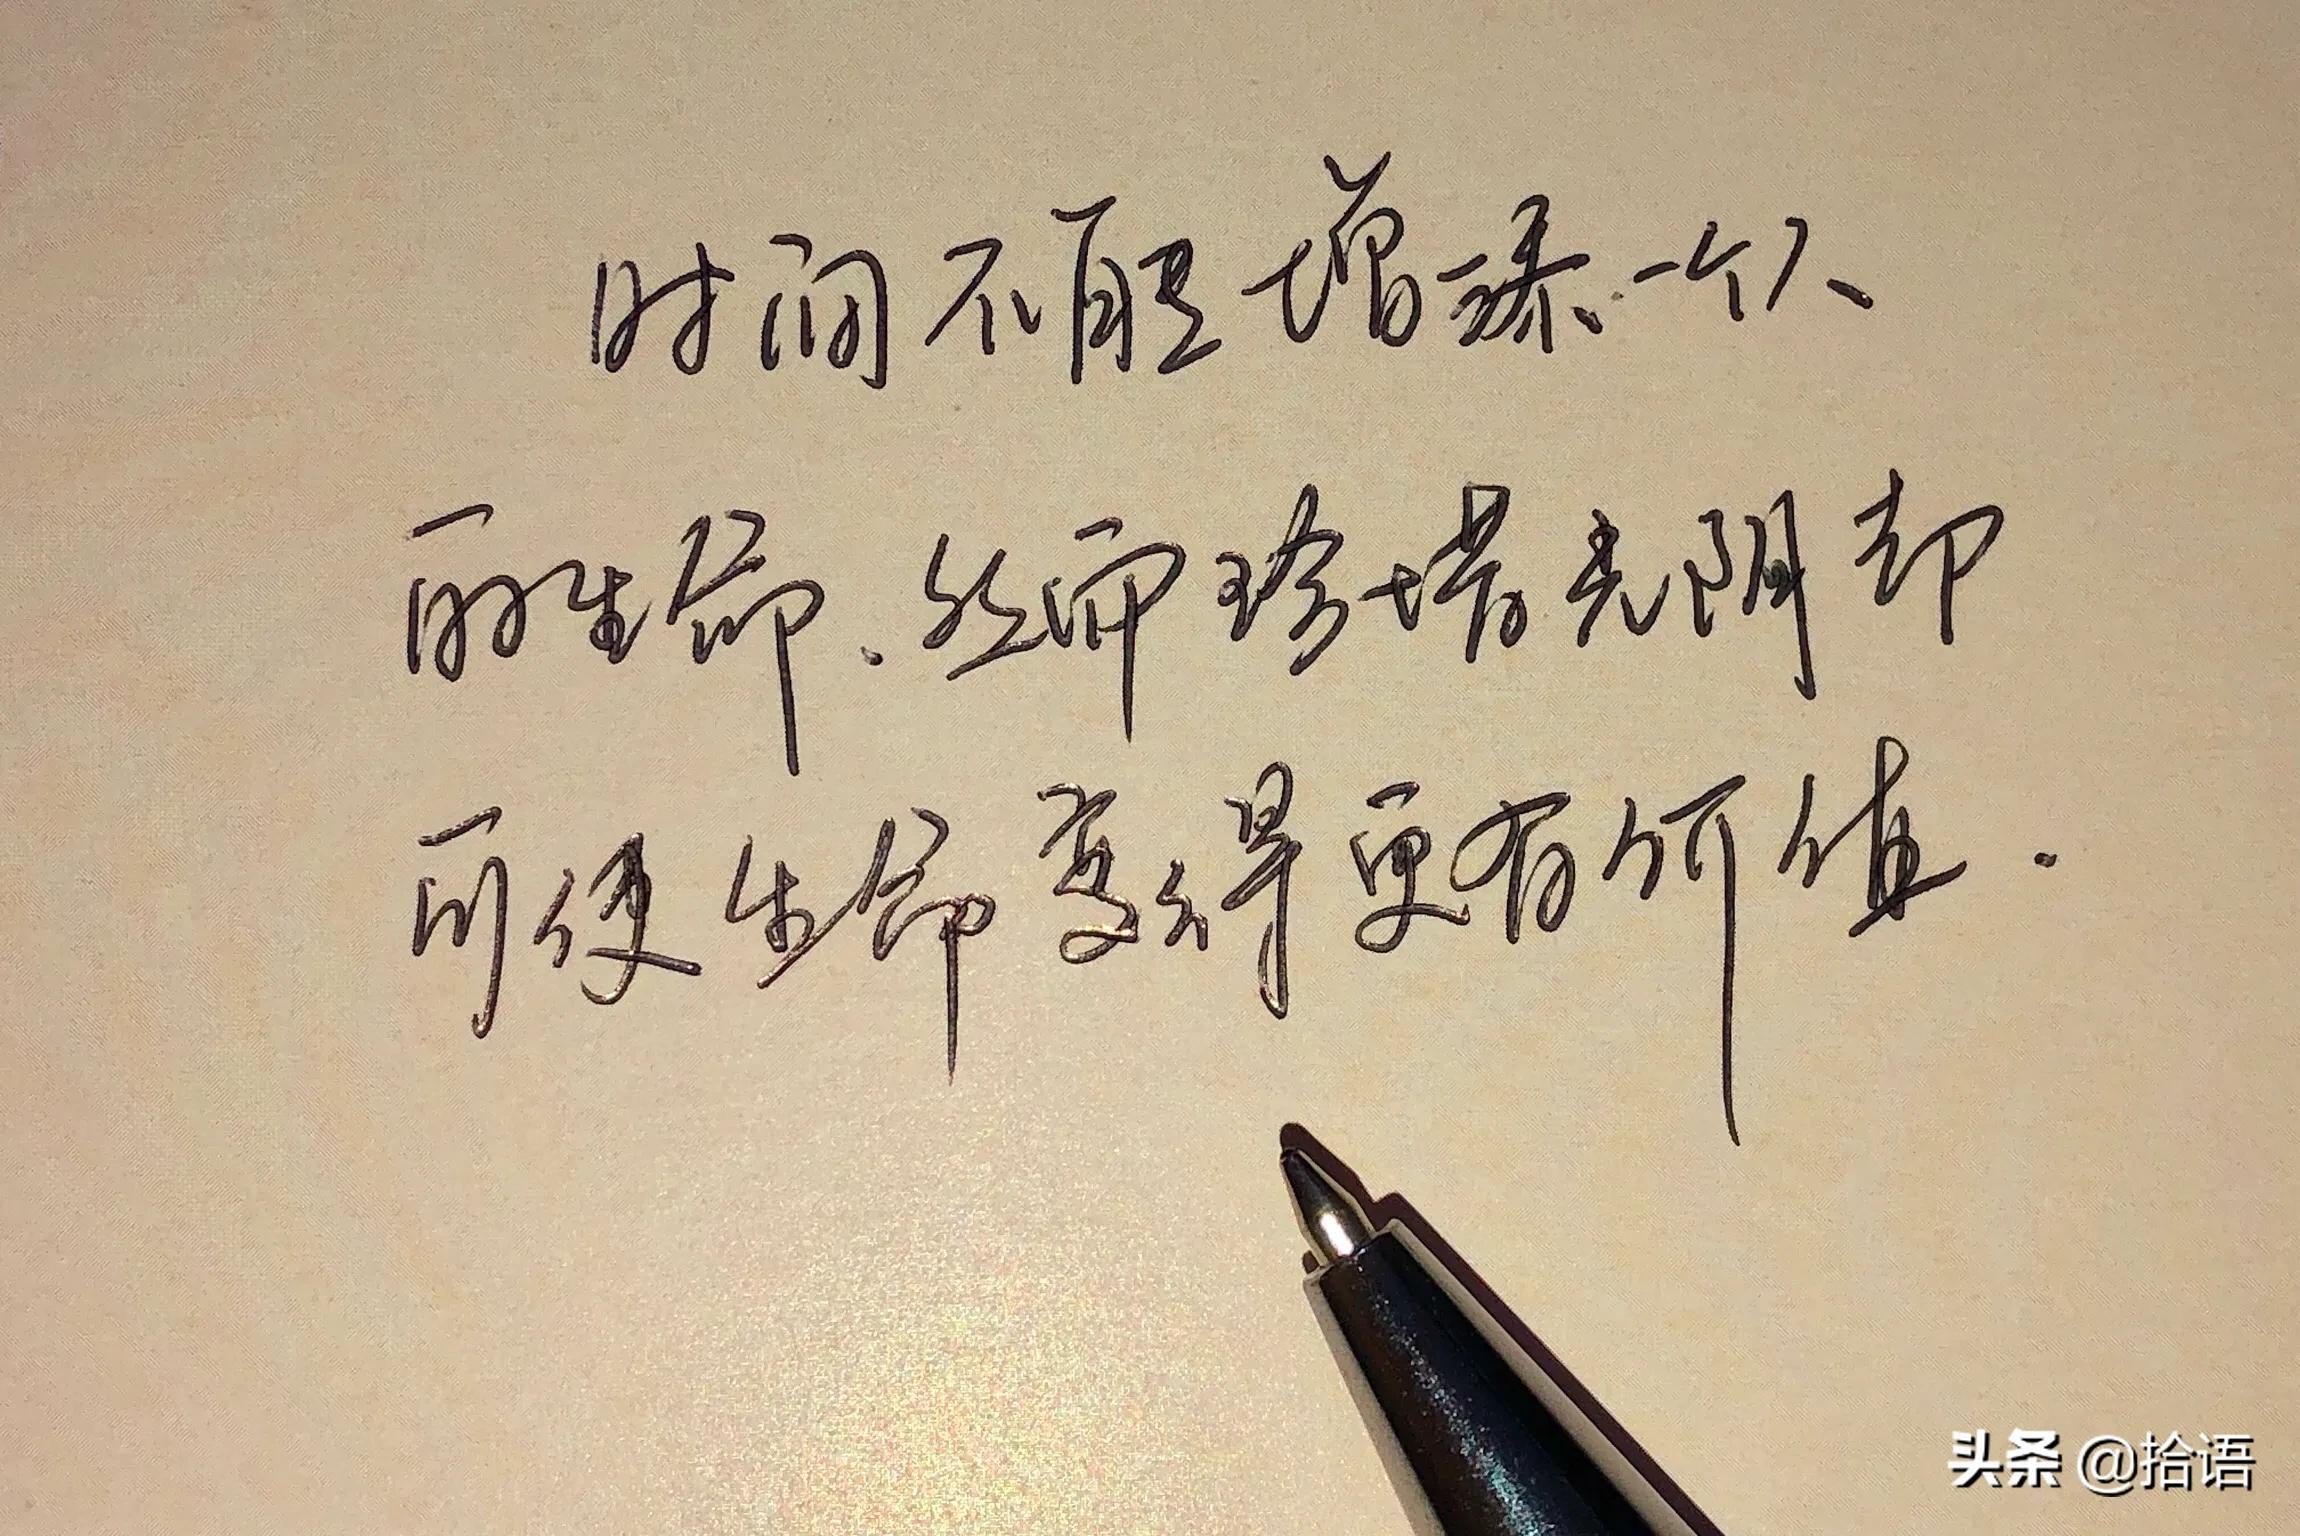 时间不能增添一个人
的生命.然而珍惜光阴却
可使生命变得更有价值.
头条 @拾语